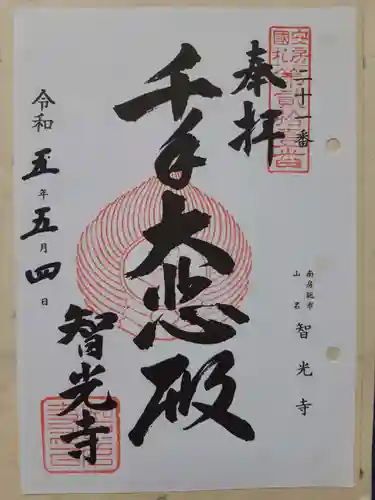 奉拝
二十一番
安房國札
第貳拾壹番
千手大悲殿
令和五年五月四日
智光寺
南房総市
山名
智光寺